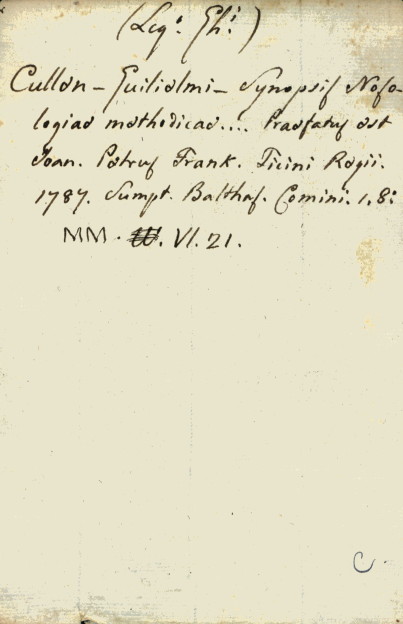 (Leg: Gh:)
Cullen - Guilielmi - Synopsis Noso-
logiae methodicae.... Praefatus est
Joan. Petrus Frank. Ticini Regii.
1787. Sumpt. Balthas. Comini. 1. 8:
MM. VI. 21.
C.